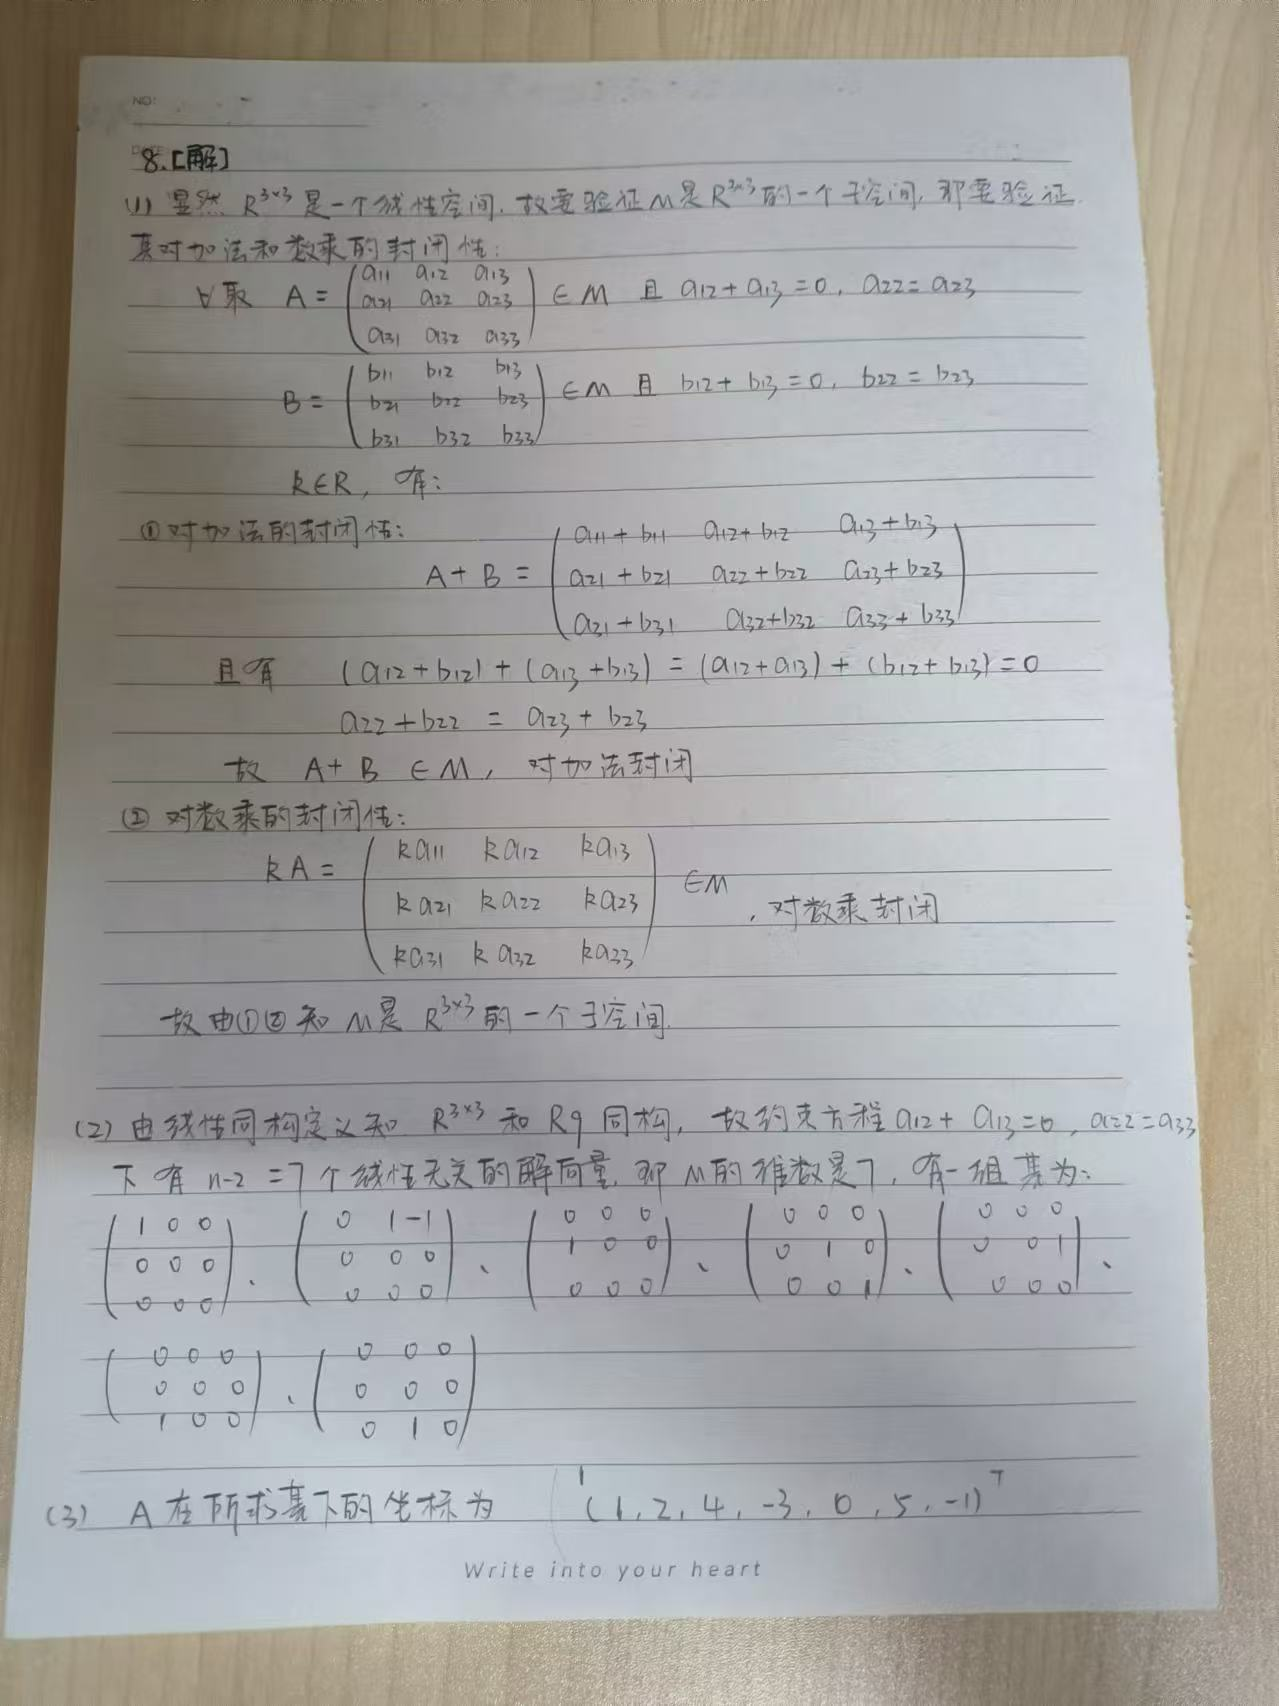 NO:
DATE:
8.[解]
(1) 显然 R³ˣ³ 是一个线性空间, 故要验证M是R³ˣ³的一个子空间, 即要验证
其对加法和数乘的封闭性:
∀取 A = (a11 a12 a13 ∈M 且 a12+a13=0, a22=a23
a21 a22 a23
a31 a32 a33)
B = (b11 b12 b13 ∈M 且 b12+b13=0, b22=b23
b21 b22 b23
b31 b32 b33)
k∈R, 有:
①对加法的封闭性:
A+B = (a11+b11 a12+b12 a13+b13
a21+b21 a22+b22 a23+b23
a31+b31 a32+b32 a33+b33)
且有 (a12+b12)+(a13+b13)=(a12+a13)+(b12+b13)=0
a22+b22 = a23+b23
故 A+B ∈M, 对加法封闭
② 对数乘的封闭性:
kA = (ka11 ka12 ka13
ka21 ka22 ka23 ∈M, 对数乘封闭
ka31 ka32 ka33)
故由①②知 M是 R³ˣ³的一个子空间.
(2) 由线性同构定义知 R³ˣ³ 和 R9 同构, 故约束方程 a12+a13=0, a22=a33
下有 n-2=7个线性无关的解向量, 即 M的维数是7, 有一组基为:
(1 0 0 、 (0 1 -1 、 (0 0 0 、 (0 0 0 、 (0 0 0 、
0 0 0 0 0 0 1 0 0 0 1 0 0 0 1
0 0 0) 0 0 0) 0 0 0) 0 0 1) 0 0 0)
(0 0 0 、 (0 0 0
0 0 0 0 0 0
1 0 0) 0 1 0)
(3) A在所求基下的坐标为 (1, 2, 4, -3, 0, 5, -1)ᵀ
Write into your heart